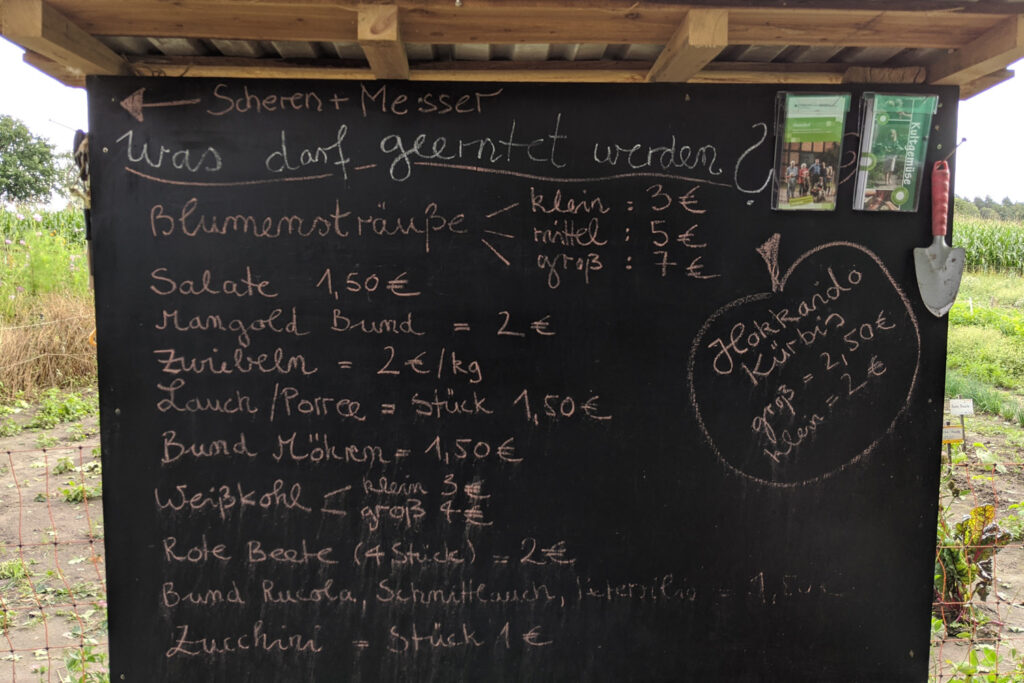 ← Scheren + Messer
Was darf geerntet werden?
Blumensträuße
klein : 3 €
mittel : 5 €
groß : 7 €
Salate 1,50 €
Mangold Bund = 2 €
Zwiebeln = 2 €/kg
Lauch /Porree = Stück 1,50 €
Bund Möhren = 1,50 €
Weißkohl
klein 3 €
groß 4 €
Rote Beete (4 Stück) = 2 €
Bund Rucola, Schnittlauch, Petersilie = 1,50 €
Zucchini = Stück 1 €
Hokkando
Kürbis
groß = 2,50 €
klein = 2 €
Kultgemüse